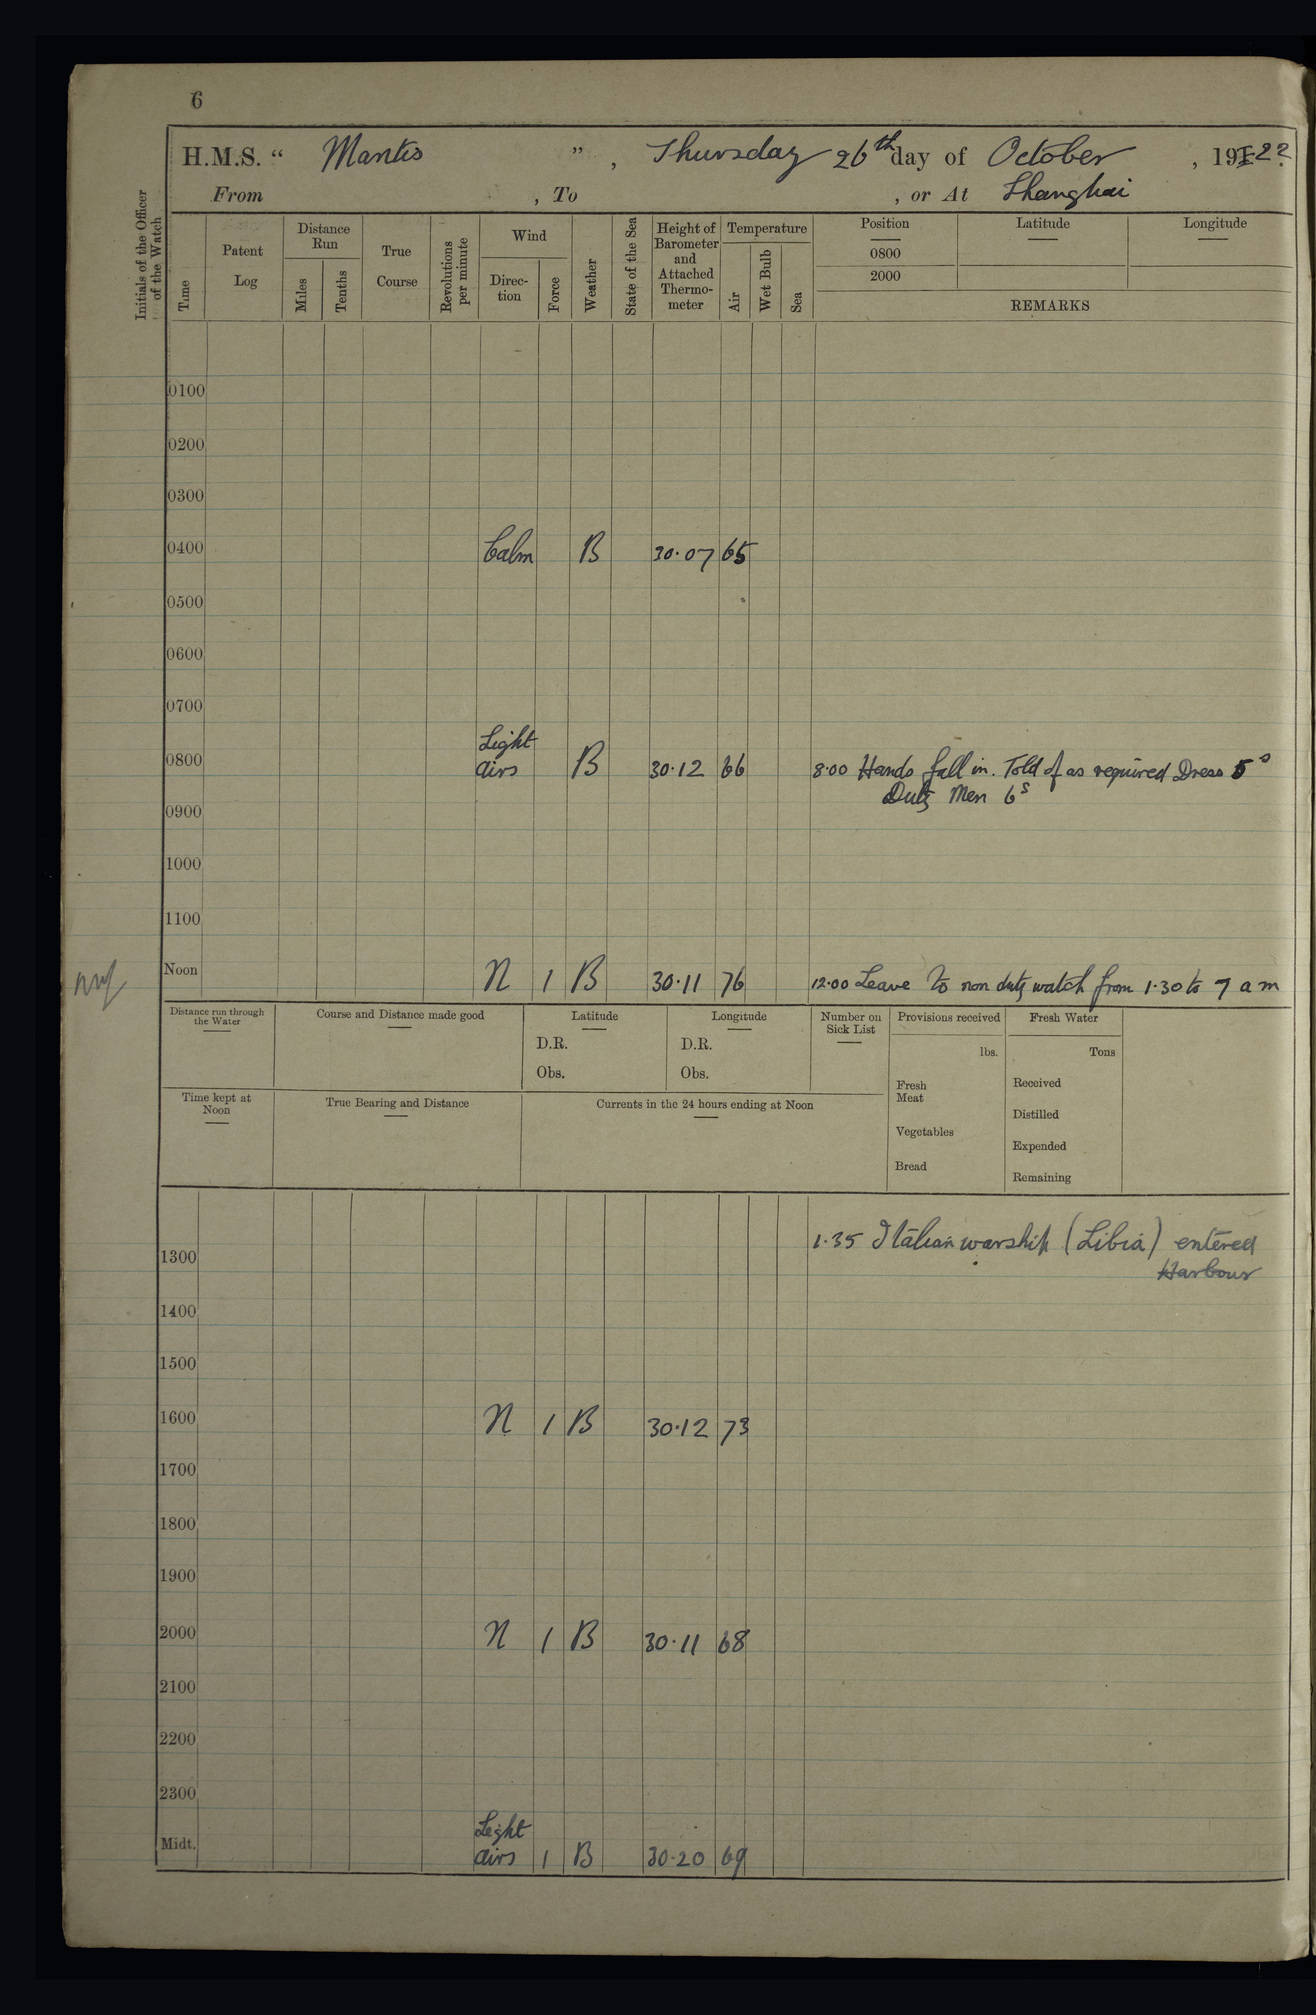 6
H.M.S. “ Mantis ” , Thursday 26th day of October , 1922.
From , To , or At Shanghai
Initials of the Officer of the Watch
Time
Patent Log
Distance Run
Miles
Tenths
True Course
Revolutions per minute
Wind
Direc-tion
Force
Weather
State of the Sea
Height of Barometer and Attached Thermo-meter
Temperature
Air
Wet Bulb
Sea
Position
0800
2000
Latitude
Longitude
REMARKS
0100
0200
0300
0400 Calm B 30.07 65
0500
0600
0700
Light
0800 airs B 30.12 66 8.00 Hands fall in. Told of as required Dress 5s
Duty Men 6s
0900
1000
1100
Noon N 1 B 30.11 76 12.00 Leave to non duty watch from 1.30 to 7 a m
Distance run through the Water
Course and Distance made good
Latitude
D.R.
Obs.
Longitude
D.R.
Obs.
Number on Sick List
Provisions received
lbs.
Fresh Meat
Vegetables
Bread
Fresh Water
Tons
Received
Distilled
Expended
Remaining
Time kept at Noon
True Bearing and Distance
Currents in the 24 hours ending at Noon
1.35 Italian warship (Libia) entered
Harbour
1300
1400
1500
1600 N 1 B 30.12 73
1700
1800
1900
2000 N 1 B 30.11 68
2100
2200
2300
Light
Midt. airs 1 B 30.20 69